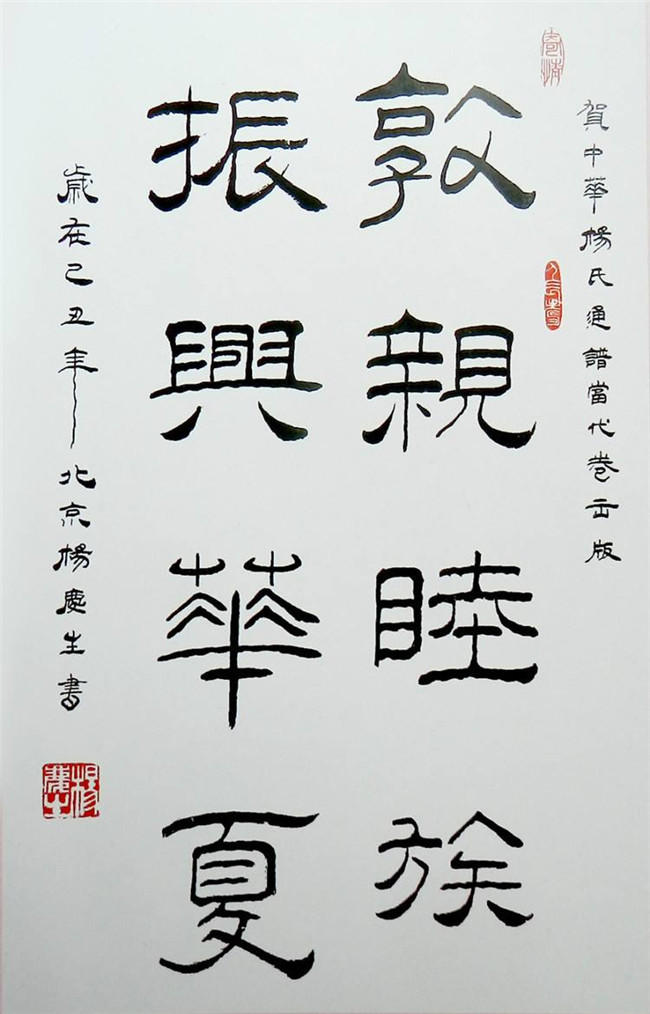 賀中華楊氏通譜當代卷出版
敦親睦族
振興華夏
歲在己丑年
北京楊慶生書
楊慶生